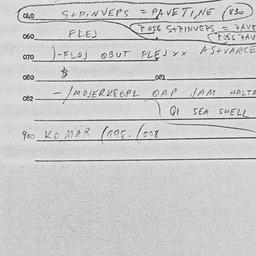 040 S+PINVEPS = PAVETINE (830
P056 S+PINVEPS = PAVE
060 FLEJ (P056 PAV
070 )-FLOJ OBUT FLEJ xx ASTVARCE
080 $ 081
082 -/MOJERKBEPL OAP JAM HALTA
Q1 SEA SHELL
900 KOMAR